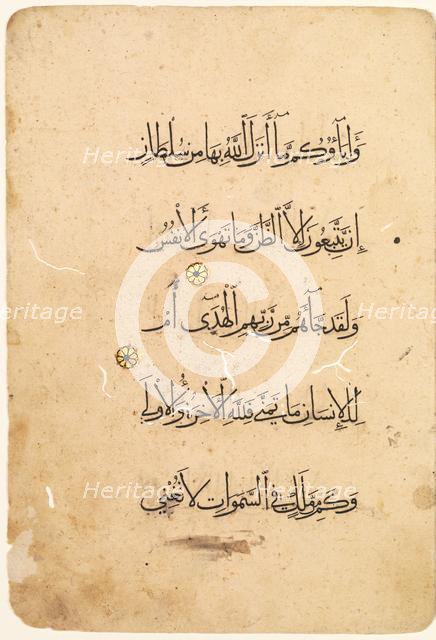 وَآبَاؤُكُم مَّا أَنزَلَ اللَّهُ بِهَا مِن سُلْطَانٍ
إِن يَتَّبِعُونَ إِلَّا الظَّنَّ وَمَا تَهْوَى الْأَنفُسُ
وَلَقَدْ جَاءَهُم مِّن رَّبِّهِمُ الْهُدَى أَمْ
لِلْإِنسَانِ مَا تَمَنَّى فَلِلَّهِ الْآخِرَةُ وَالْأُولَى
وَكَم مِّن مَّلَكٍ فِي السَّمَوَاتِ لَا تُغْنِي
Heritage Heritage Heritage
Heritage Heritage Heritage
Heritage Heritage Heritage